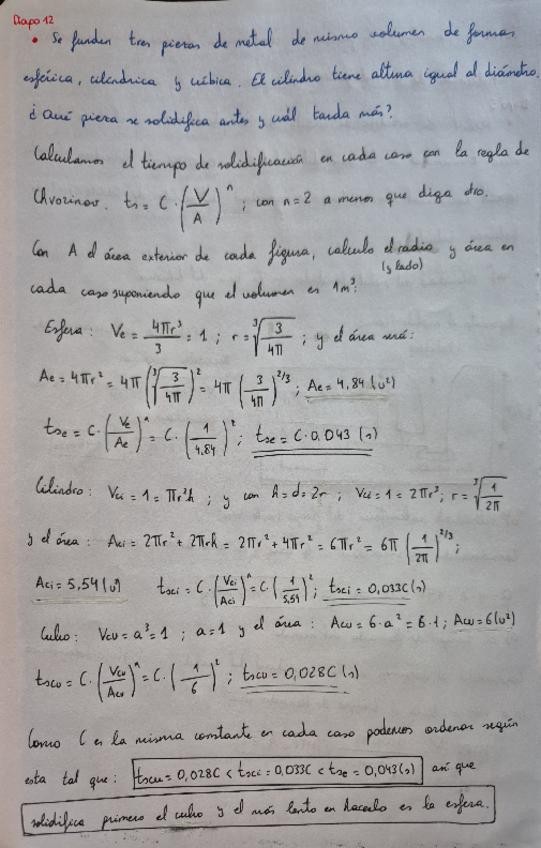 Diapo 12
• Se funden tres piezas de metal de mismo volumen de formas
esférica, cilíndrica y cúbica. El cilindro tiene altura igual al diámetro.
¿Qué pieza se solidifica antes y cuál tarda más?
Calculamos el tiempo de solidificación en cada caso con la regla de
Chvorinov. ts = C · (V/A)^n ; con n=2 a menos que diga otro.
Con A el área exterior de cada figura, calculo el radio y área en
(y lado)
cada caso suponiendo que el volumen es 1m³:
Esfera: Ve = 4πr³/3 = 1 ; r = ∛(3/4π) ; y el área será:
Ae = 4πr² = 4π(∛(3/4π))² = 4π(3/4π)^2/3 ; Ae = 4,84 (u²)
tse = C·(Ve/Ae)^n = C·(1/4.84)² ; tse = C·0,043 (s)
Cilindro: Vci = 1 = πr²h ; y con h=d=2r ; Vci = 1 = 2πr³ ; r = ∛(1/2π)
y el área: Aci = 2πr² + 2πrh = 2πr² + 4πr² = 6πr² = 6π(1/2π)^2/3 ;
Aci = 5,54 (u²) tsci = C·(Vci/Aci)^n = C·(1/5,54)² ; tsci = 0,033C (s)
Cubo: Vcu = a³ = 1 ; a=1 y el área: Acu = 6·a² = 6·1 ; Acu = 6 (u²)
tscu = C·(Vcu/Acu)^n = C·(1/6)² ; tscu = 0,028C (s)
Como C es la misma constante en cada caso podemos ordenar según
esta tal que: tscu = 0,028C < tsci = 0,033C < tse = 0,043 (s) así que
solidifica primero el cubo y el más lento en hacerlo es la esfera.